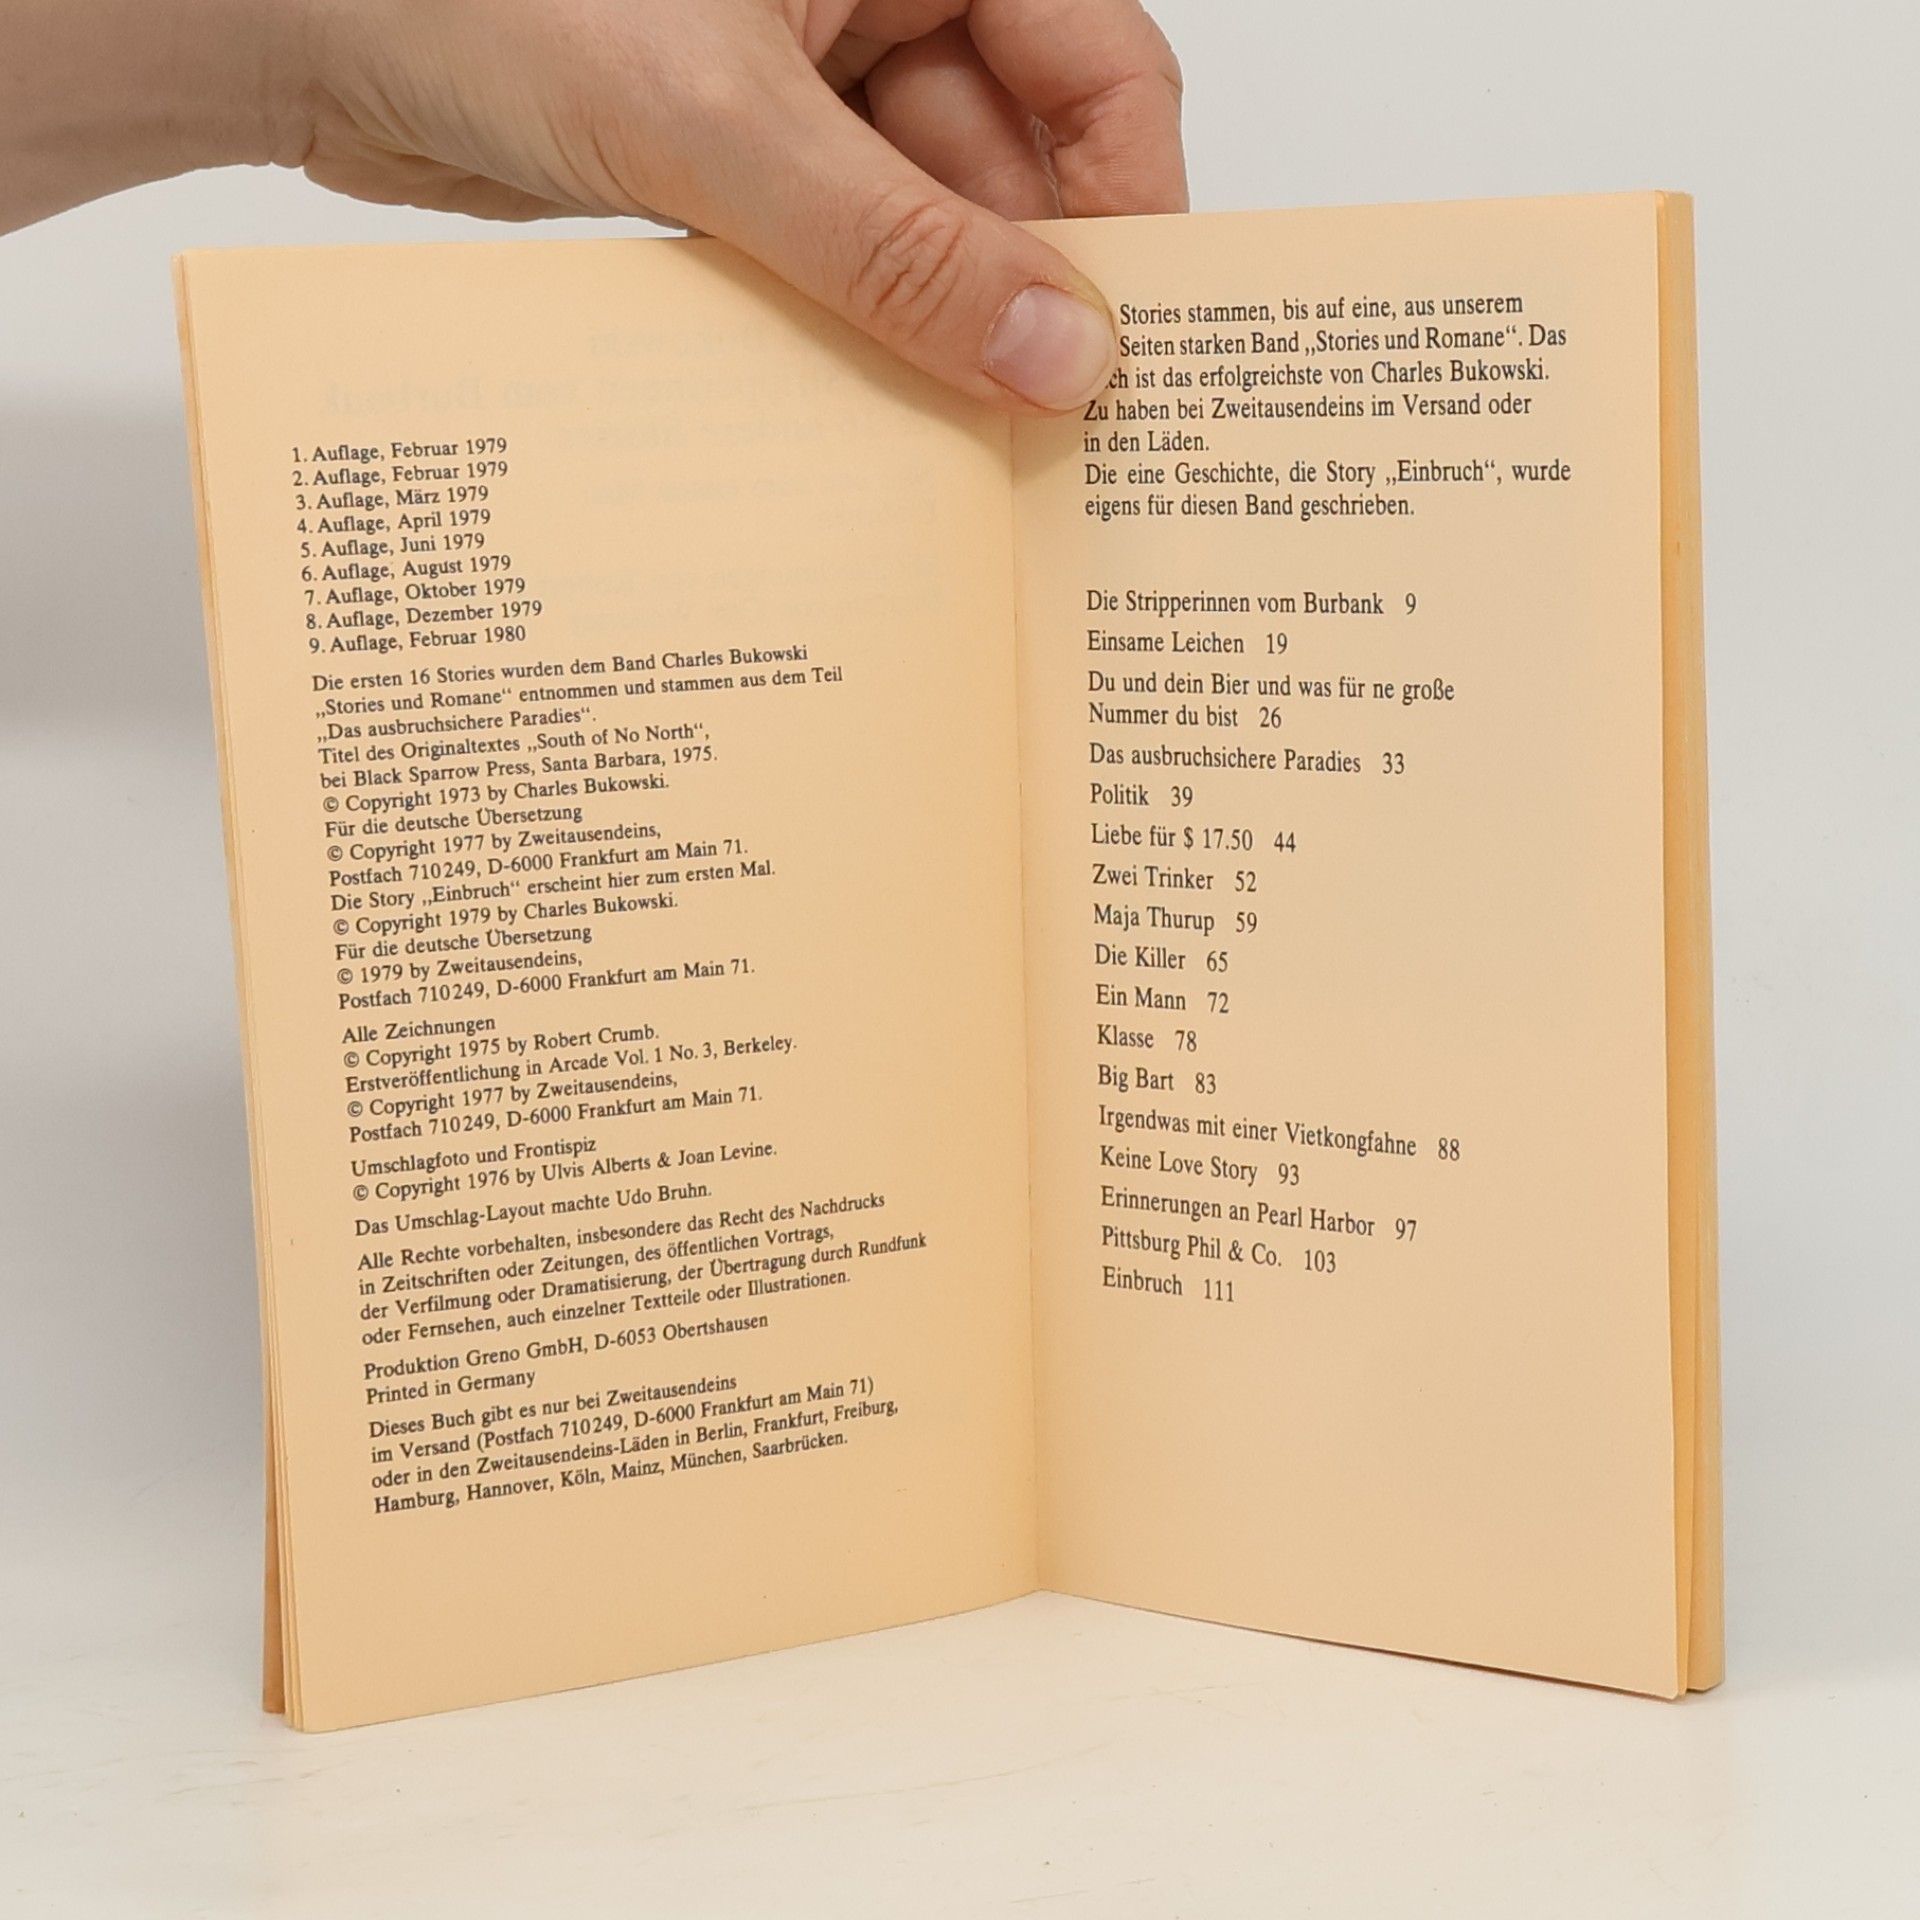 1. Auflage, Februar 1979
2. Auflage, Februar 1979
3. Auflage, März 1979
4. Auflage, April 1979
5. Auflage, Juni 1979
6. Auflage, August 1979
7. Auflage, Oktober 1979
8. Auflage, Dezember 1979
9. Auflage, Februar 1980
Die ersten 16 Stories wurden dem Band Charles Bukowski
„Stories und Romane“ entnommen und stammen aus dem Teil
„Das ausbruchsichere Paradies“.
Titel des Originaltextes „South of No North“,
bei Black Sparrow Press, Santa Barbara, 1975.
© Copyright 1973 by Charles Bukowski.
Für die deutsche Übersetzung
© Copyright 1977 by Zweitausendeins,
Postfach 710249, D-6000 Frankfurt am Main 71.
Die Story „Einbruch“ erscheint hier zum ersten Mal.
© Copyright 1979 by Charles Bukowski.
Für die deutsche Übersetzung
© 1979 by Zweitausendeins,
Postfach 710249, D-6000 Frankfurt am Main 71.
Alle Zeichnungen
© Copyright 1975 by Robert Crumb.
Erstveröffentlichung in Arcade Vol. 1 No. 3, Berkeley.
© Copyright 1977 by Zweitausendeins,
Postfach 710249, D-6000 Frankfurt am Main 71.
Umschlagfoto und Frontispiz
© Copyright 1976 by Ulvis Alberts & Joan Levine.
Das Umschlag-Layout machte Udo Bruhn.
Alle Rechte vorbehalten, insbesondere das Recht des Nachdrucks
in Zeitschriften oder Zeitungen, des öffentlichen Vortrags,
der Verfilmung oder Dramatisierung, der Übertragung durch Rundfunk
oder Fernsehen, auch einzelner Textteile oder Illustrationen.
Produktion Greno GmbH, D-6053 Obertshausen
Printed in Germany
Dieses Buch gibt es nur bei Zweitausendeins
im Versand (Postfach 710249, D-6000 Frankfurt am Main 71)
oder in den Zweitausendeins-Läden in Berlin, Frankfurt, Freiburg,
Hamburg, Hannover, Köln, Mainz, München, Saarbrücken.
Stories stammen, bis auf eine, aus unserem
Seiten starken Band „Stories und Romane“. Das
ist das erfolgreichste von Charles Bukowski.
Zu haben bei Zweitausendeins im Versand oder
in den Läden.
Die eine Geschichte, die Story „Einbruch“, wurde
eigens für diesen Band geschrieben.
Die Stripperinnen vom Burbank 9
Einsame Leichen 19
Du und dein Bier und was für ne große
Nummer du bist 26
Das ausbruchsichere Paradies 33
Politik 39
Liebe für $ 17.50 44
Zwei Trinker 52
Maja Thurup 59
Die Killer 65
Ein Mann 72
Klasse 78
Big Bart 83
Irgendwas mit einer Vietkongfahne 88
Keine Love Story 93
Erinnerungen an Pearl Harbor 97
Pittsburg Phil & Co. 103
Einbruch 111